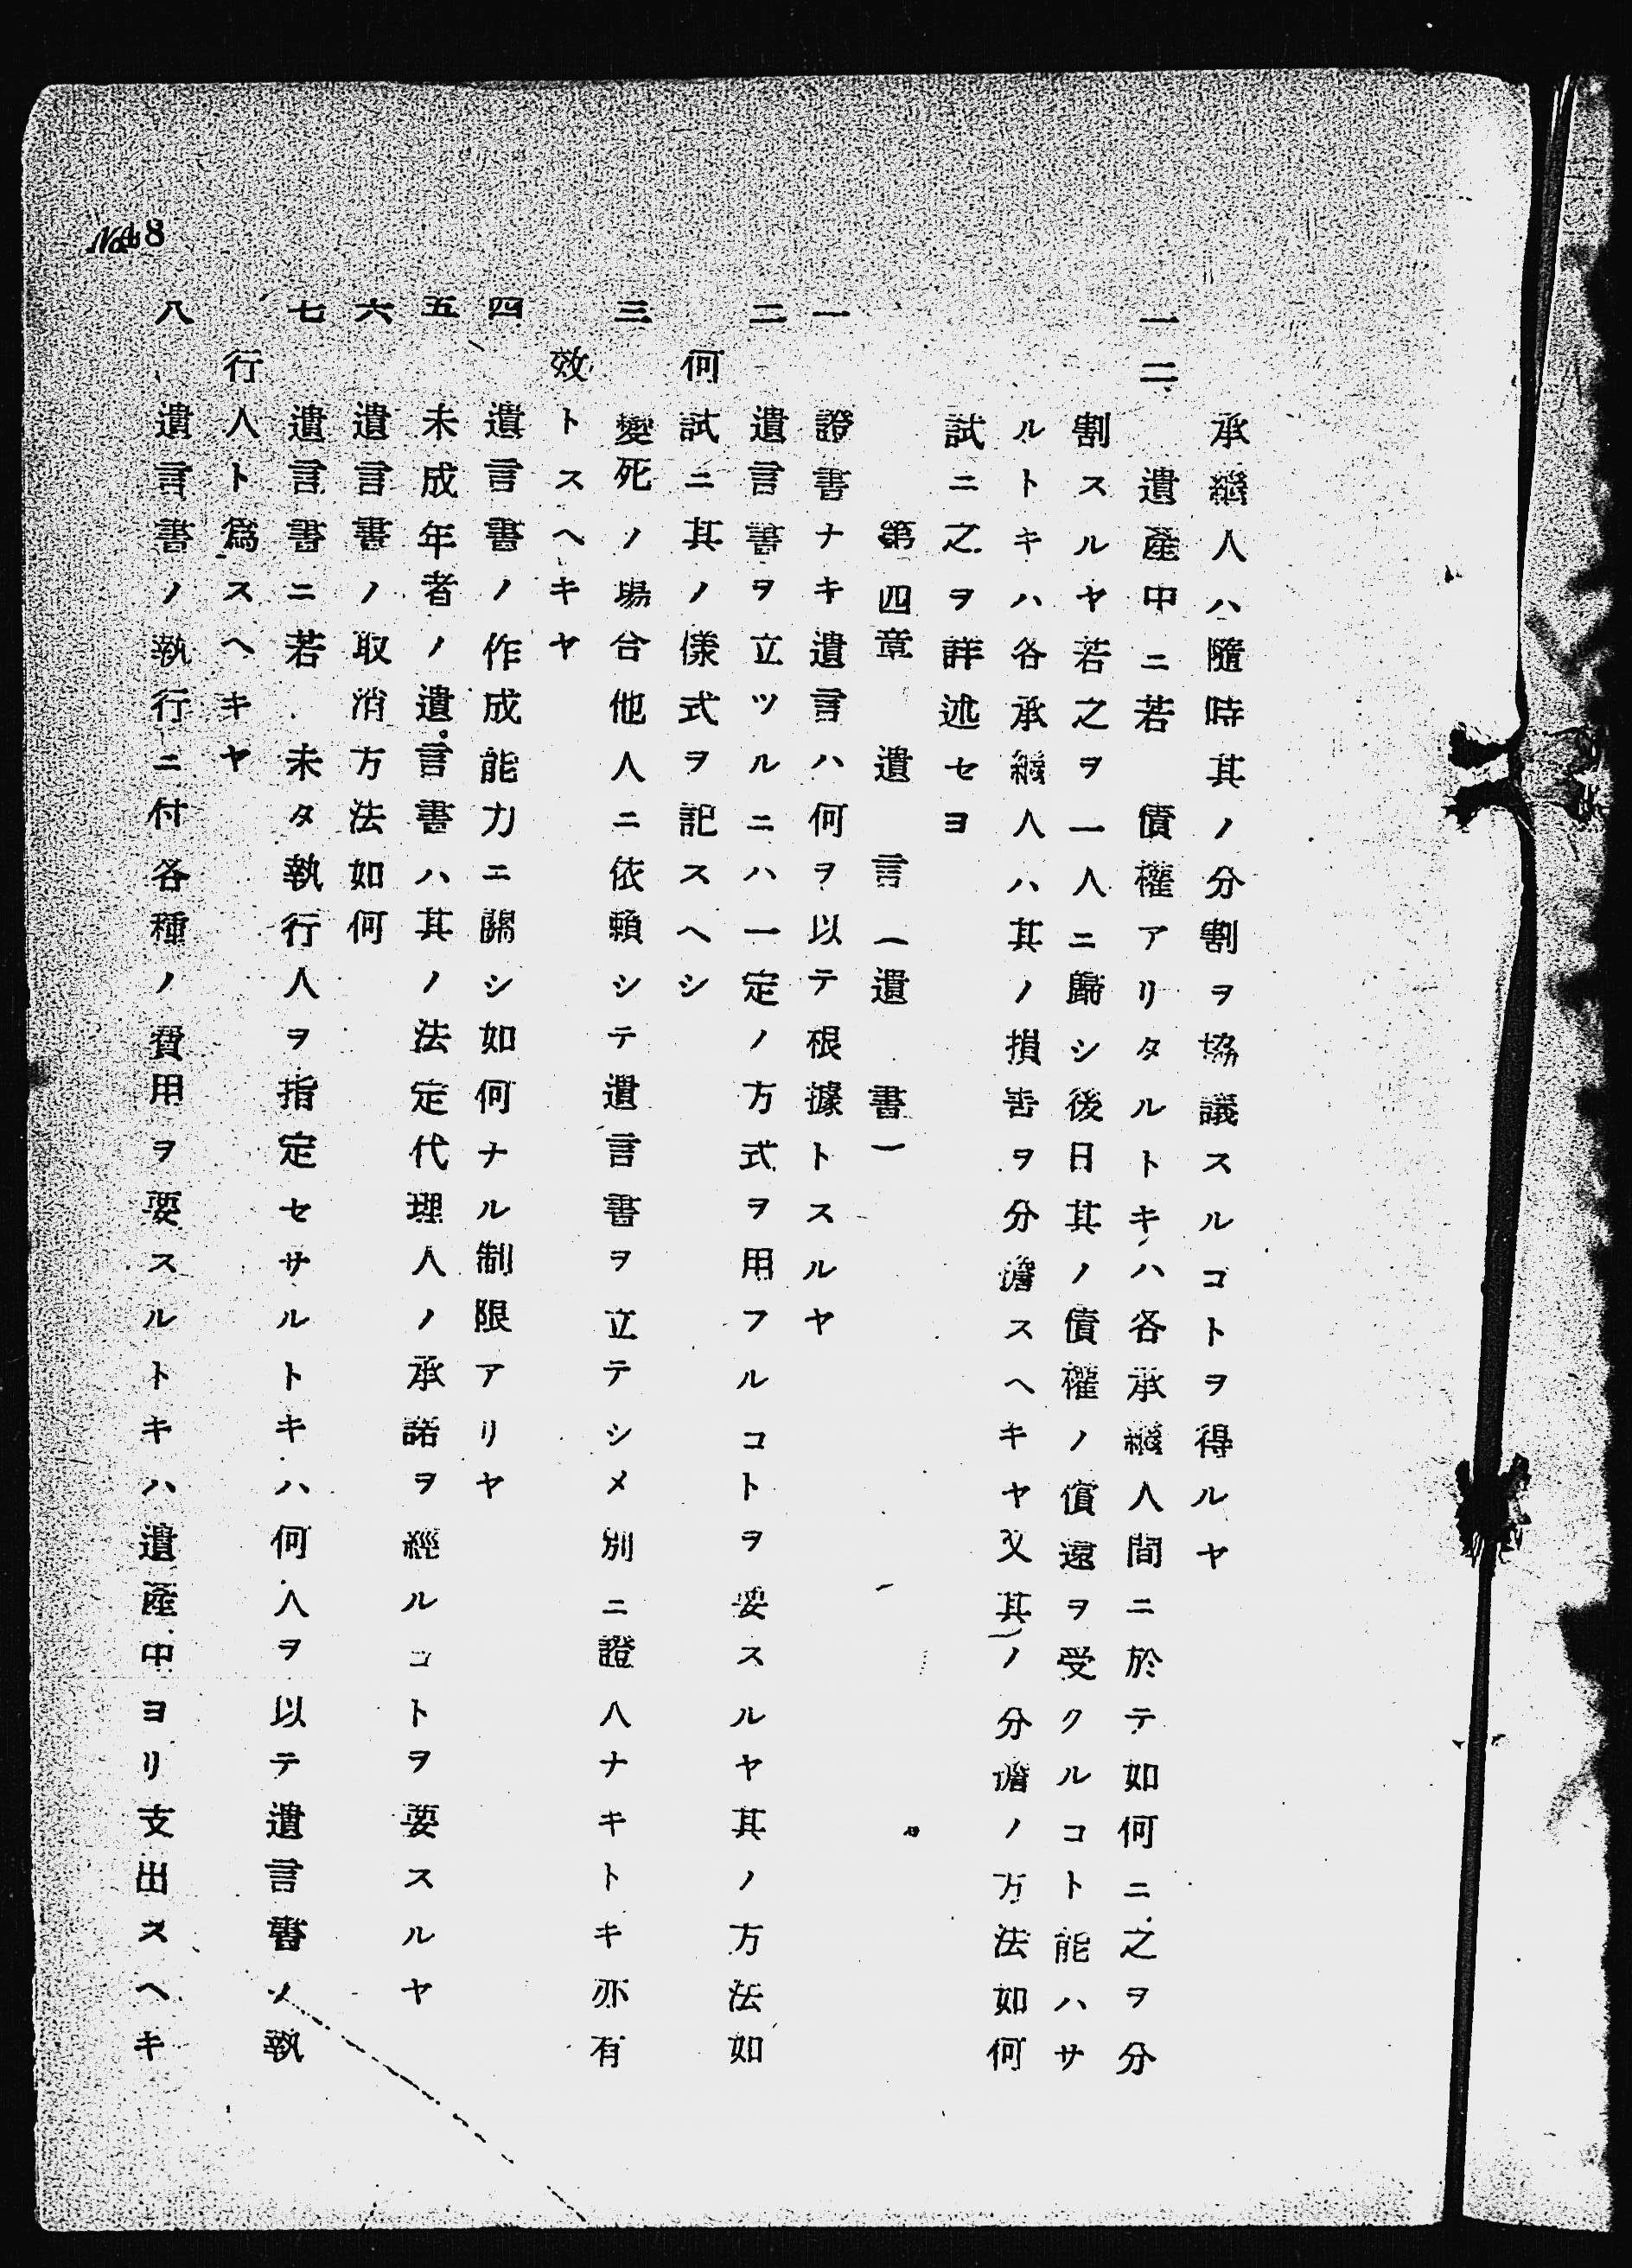 承繼人ハ隨時其ノ分割ヲ協議スルコトヲ得ルヤ
一二 遺產中ニ若 債權アリタルトキハ各承繼人間ニ於テ如何ニ之ヲ分
割スルヤ若之ヲ一人ニ歸シ後日其ノ債權ノ償還ヲ受クルコト能ハサ
ルトキハ各承繼人ハ其ノ損害ヲ分擔スヘキヤ又其ノ分擔ノ方法如何
試ニ之ヲ詳述セヨ
第四章 遺 言 (遺 書)
一 證書ナキ遺言ハ何ヲ以テ根據トスルヤ
二 遺言書ヲ立ツルニハ一定ノ方式ヲ用フルコトヲ要スルヤ其ノ方法如
何試ニ其ノ樣式ヲ記スヘシ
三 變死ノ場合他人ニ依賴シテ遺言書ヲ立テシメ別ニ證人ナキトキ亦有
效トスヘキヤ
四 遺言書ノ作成能力ニ關シ如何ナル制限アリヤ
五 未成年者ノ遺言書ハ其ノ法定代理人ノ承諾ヲ經ルコトヲ要スルヤ
六 遺言書ノ取消方法如何
七 遺言書ニ若 未タ執行人ヲ指定セサルトキハ何人ヲ以テ遺言書ノ執
行人ト爲スヘキヤ
八 遺言書ノ執行ニ付各種ノ費用ヲ要スルトキハ遺產中ヨリ支出スヘキ